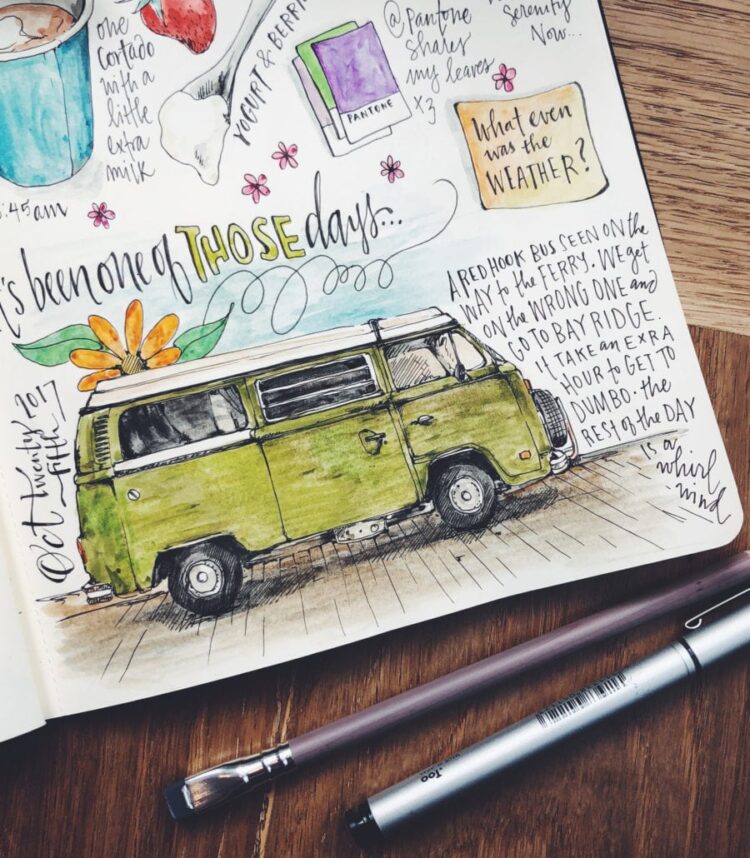 one
Cortado
with a
little
extra
milk
:45am
YOGURT & BERRI
PANTONE
@Pantone
shares
my leaves
x3
Serenity
Now...
What even
was the
WEATHER?
's been one of THOSE days...
A RED HOOK BUS SEEN ON the
WAY to the FERRY. WE get
ON the WRONG ONE and
GO TO BAY RIDGE.
It TAKE an EXRA
HOUR to GET TO
DUMBO. the
REST of the DAY
is a
whirl
wind
Oct twenty 2017
fifth
.Too